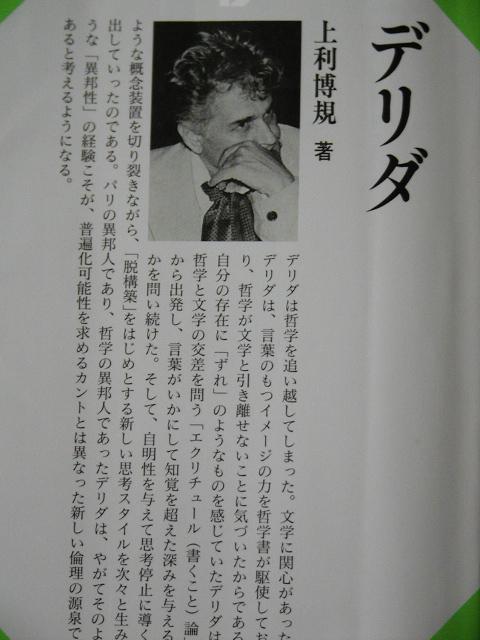 デリダ
上利博規 著
デリダは哲学を追い越してしまった。文学に関心があった
デリダは、言葉のもつイメージの力を哲学書が駆使してお
り、哲学が文学と引き離せないことに気づいたからである
自分の存在に「ずれ」のようなものを感じていたデリダは
哲学と文学の交差を問う「エクリチュール（書くこと）論」
から出発し、言葉がいかにして知覚を超えた深みを与える
かを問い続けた。そして、自明性を与えて思考停止に導く
ような概念装置を切り裂きながら、「脱構築」をはじめとする新しい思考スタイルを次々と生み
出していったのである。パリの異邦人であり、哲学の異邦人であったデリダは、やがてそのよ
うな「異邦性」の経験こそが、普遍化可能性を求めるカントとは異なった新しい倫理の源泉で
あると考えるようになる。